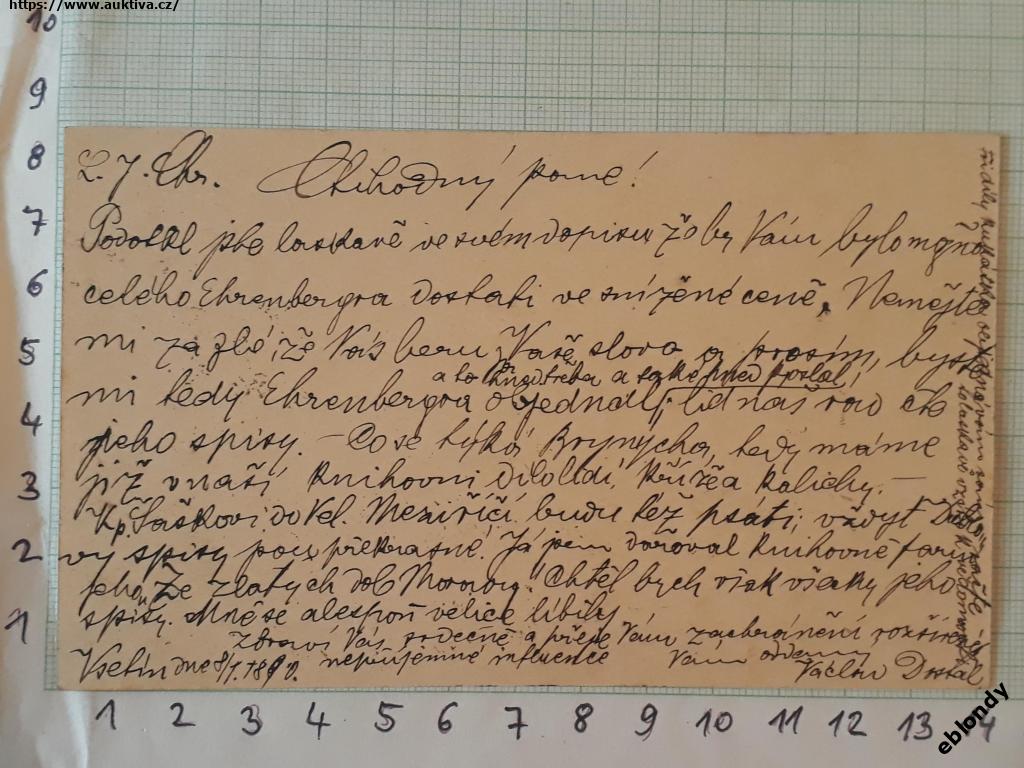 https://www.auktiva.cz/
10
9
8
7
6
5
4
3
2
1
Ctihodný pane!
laskavě ve svém dopisu že by Vám bylo možno
celého Ehrenbergra dostati ve snížené ceně. Nemějte
mi za zlé, že Vás beru za Vaše slovo a prosím, byste
a to hned třeba a také hned poslal!
mi tedy Ehrenbergra objednal; lid náš rád čte
jeho spisy. – Co se týká Brynycha, tedy máme
již v naší knihovni Kříž a Kalich. –
Kp. Šaškovi do Vel. Meziříčí budu též psáti; vždyť
vy spisy jsou překrásné. Já jsem daroval knihovně
jeho „Ze zlatých dob Moravy." Chtěl bych však všecky jeho
spisy. Mně se alespoň velice líbily
Zdraví Vás srdečně a přeje Vám zachránění
nepříjemné influence Vám oddaný
Vsetín dne 8/1. 1890. Václav Dostál
1 2 3 4 5 6 7 8 9 10 11 12 13 14
eblondy